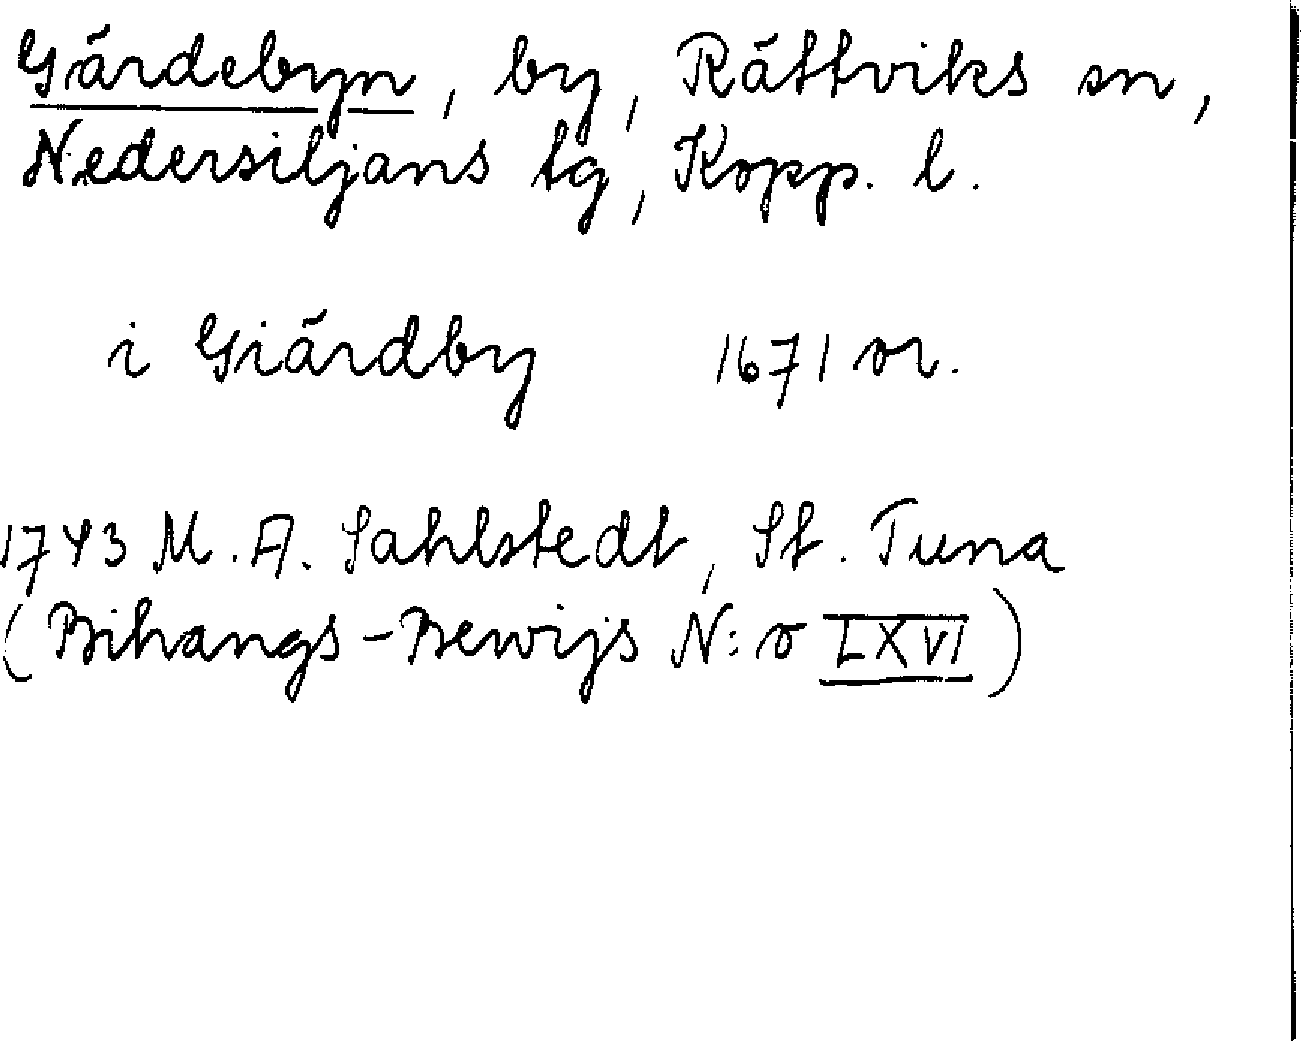 Gärdebyn, by, Rättviks sn,
Nedersiljans tg, Kopp. l.
i Giärdby 1671 or.
1743 M. A. Sahlstedt, St. Tuna
(Bihangs-Bewijs N:o LXVI)